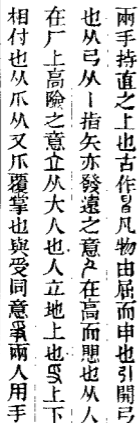 兩手持直之上也古作凡物由屈而申也引開弓
也从弓从丨指矢亦發遠之意在高而也从人
在厂上高險之意立从大人也人立地上也上下
相付也从爪从又爪覆掌也與受同意兩人用手